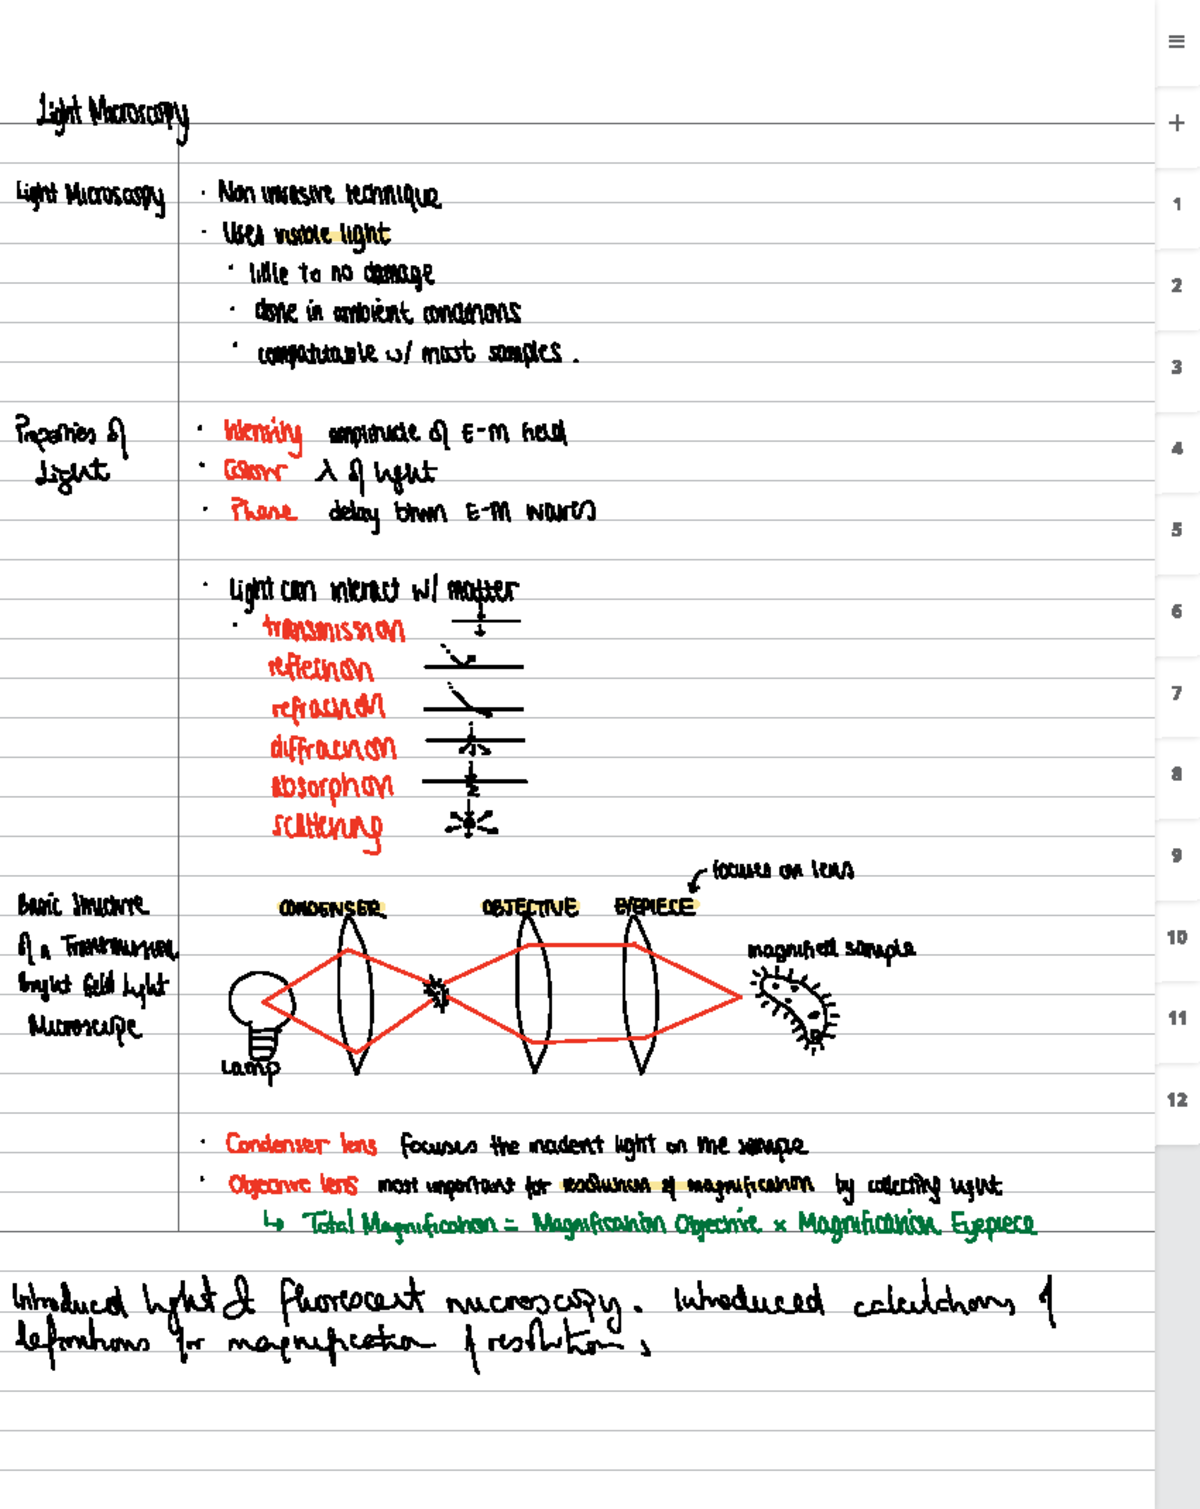 Light Microscopy
Light Microscopy
· Non invasive technique
· Uses visible light
· little to no damage
· done in ambient conditions
· compatitable w/ most samples.
Properties of
Light
· Intensity amplitude of E-M field
· Colour λ of light
· Phase delay btwn E-M waves
· Light can interact w/ matter
· transmission
reflection
refraction
diffraction
absorption
scattering
focuses on lens
Basic Structure
of a Transmission
Bright field Light
Microscope
CONDENSER OBJECTIVE EYEPIECE
magnified sample
Lamp
· Condenser lens focuses the incident light on the sample
· Objective lens most important for resolution of magnification by collecting light
↳ Total Magnification = Magnification Objective × Magnification Eyepiece
Introduced light & fluorescent microscopy. Introduced calculations &
definitions for magnification & resolution.
+
1
2
3
4
5
6
7
8
9
10
11
12